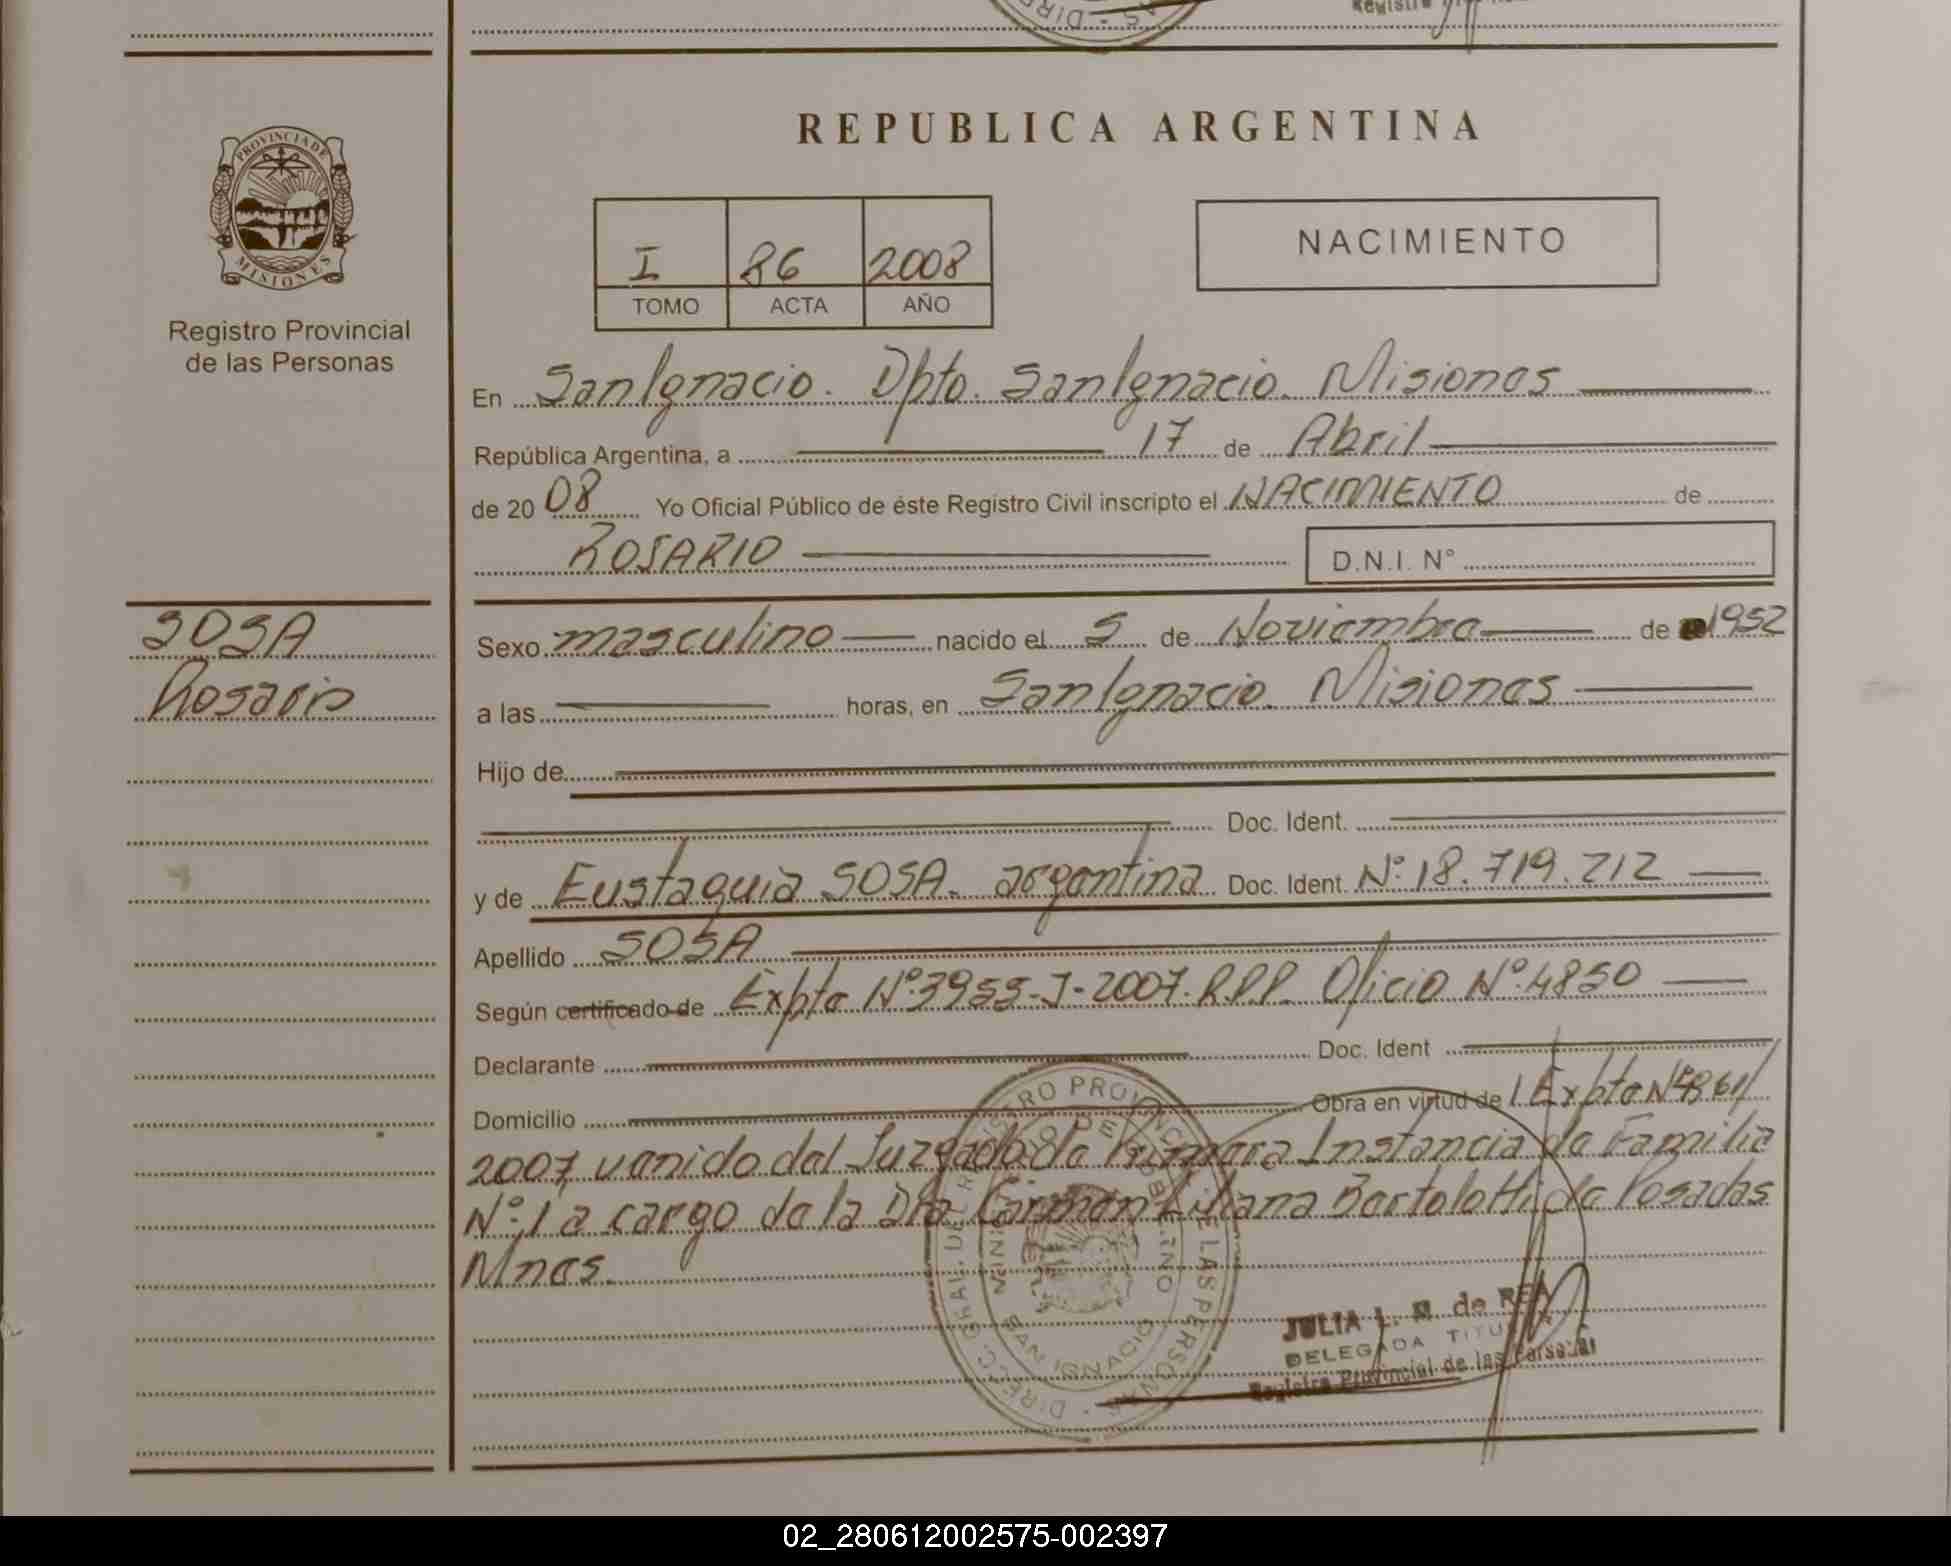 REPUBLICA ARGENTINA
PROVINCIA DE
MISIONES
Registro Provincial
de las Personas
I 86 2008
TOMO ACTA AÑO
NACIMIENTO
En San Ignacio. Dpto. San Ignacio. Misiones
República Argentina, a 17 de Abril
de 20 08 Yo Oficial Público de éste Registro Civil inscripto el NACIMIENTO de
ROSARIO D.N.I. N°
SOSA
Rosario
Sexo masculino nacido el 5 de Noviembre de 1952
a las horas, en San Ignacio. Misiones
Hijo de
Doc. Ident.
y de Eustaquia SOSA. argentina Doc. Ident. N° 18.719.212
Apellido SOSA
Según certificado de Expte N° 3955-J-2007. R.P.P. Oficio N° 4850
Declarante Doc. Ident
Domicilio Obra en virtud de Expte N°
2007 venido del Juzgado de Primera Instancia de Familia
N°. 1 a cargo de la Dra Carmen Liliana Bortolotti de Posadas
Mnes.
SAN IGNACIO
JULIA L. de REA
DELEGADA TITULAR
Registro Provincial de las Personas
02_280612002575-002397